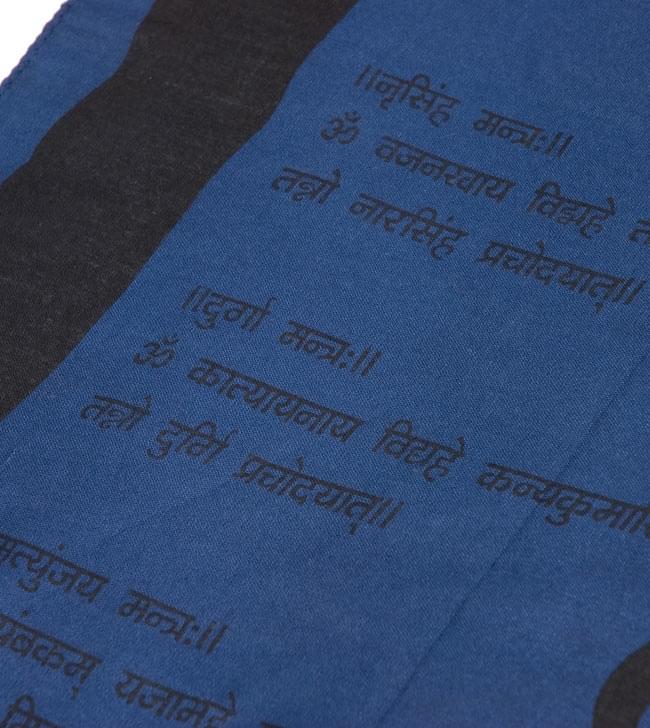 ॥नृसिंह मन्त्रः॥
ॐ वजनरवाय विद्महे
तन्नो नारसिंह प्रचोदयात्॥
॥दुर्गा मन्त्रः॥
ॐ कात्यायनाय विद्यहे कन्यकुमारि
तन्नो दुर्गि प्रचोदयात्॥
मन्त्रः॥
यजामहे